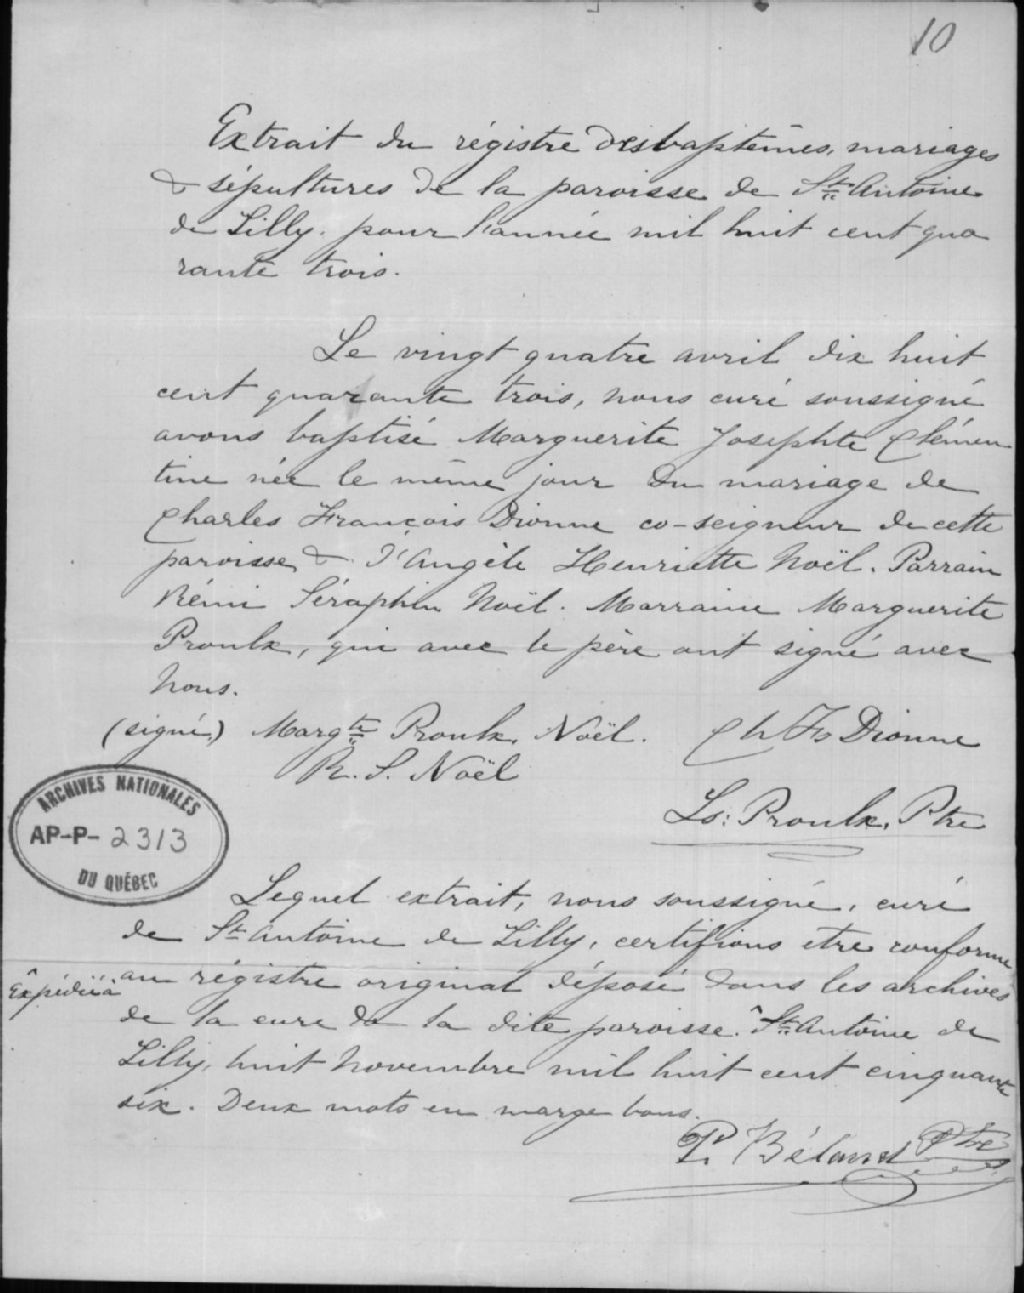 10
Extrait du régistre des baptêmes, mariages
& sépultures de la paroisse de St. Antoine
de Lilly, pour l'année mil huit cent qua
rante trois.
Le vingt quatre avril dix huit
cent quarante trois, nous curé soussigné
avons baptisé Marguerite Josephte Clémen
tine née le même jour du mariage de
Charles François Dionne co-seigneur de cette
paroisse & d'Angèle Henriette Noël. Parrain
Rémi Séraphin Noël. Marraine Marguerite
Proulx, qui avec le père ont signé avec
nous.
(signé) Margte Proulx, Noël. Ch Fs Dionne
R. S. Noël
Ls: Proulx, Ptre
ARCHIVES NATIONALES
AP-P-2313
DU QUÉBEC
Lequel extrait, nous soussigné, curé
de St. Antoine de Lilly, certifions être conforme
au régistre original déposé dans les archives
Expédié à
de la cure de la dite paroisse. St. Antoine de
Lilly, huit novembre mil huit cent cinquante
six. Deux mots en marge bons.
P. Béland Ptre